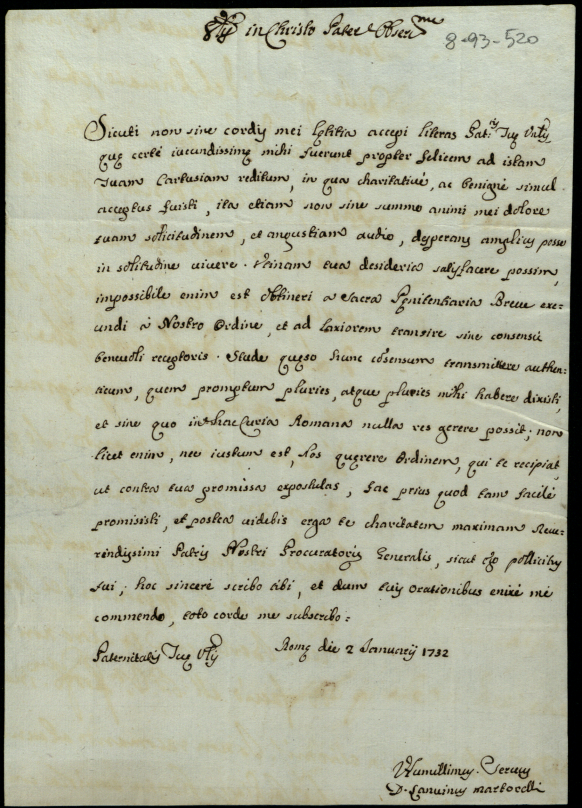 in Christo Pater Obser.me
8-93-520
Sicuti non sine cordis mei lętitia accepi literas Pat.is Tuę Vrę
quę certè iucundissimę mihi fuerunt propter felicem ad istam
tuam Cartusiam reditum, in qua charitativè, ac benignè simul
acceptus fuisti, ita etiam non sine summo animi mei dolore
tuam solicitudinem, et angustiam audio, desperans amplius posse
in solitudine vivere. Utinam tua desideria satisfacere possim,
impossibile enim est obtineri a Sacra Pęnitentiaria Breve exe-
undi à Nostro Ordine, et ad laxiorem transire sine consensu
benevoli receptoris. Stude quęso hunc cōsensum transmittere authen-
ticum, quem promptum pluries, atque pluries mihi habere dixisti,
et sine quo in hac Curia Romana nulla res gerere possit; non
licet enim, nec iustum est, Nos quęrere Ordinem, qui te recipiat,
ut contra tua promissa expostulas, fac prius quod tam facilè
promisisti, et postea videbis erga te charitatem maximam Reve-
rendissimi Patris Nostri Procuratoris Generalis, sicut pollicitus
fui; hoc sincerè scribo tibi, et dum tuis orationibus enixè me
commendo, toto corde me subscribo:
Paternitatis Tuę
Romę die 2 Januarij 1732
Humillimus Servus
D. Lanuinus